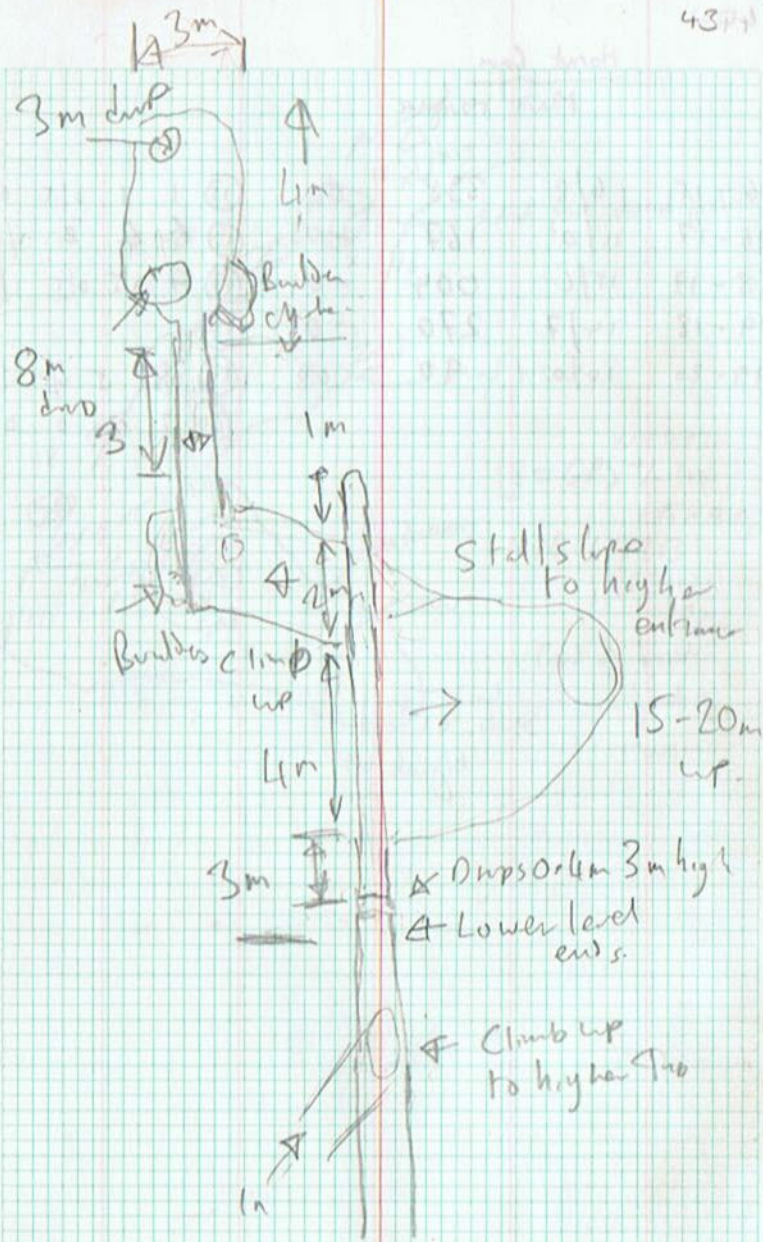 43
3m
3m drop
4m
Boulder
8m
3
1m
Stal slope
to higher
entrance
2m
Boulders Climb
up
15-20m
up.
4m
3m
Drops 0.4m 3m high
Lower level
ends.
Climb up
to higher
In